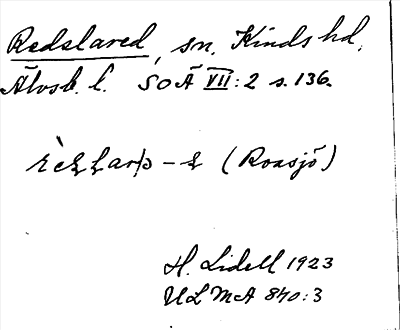 Redslared, sn. Kinds hd,
Älvsb. l. SOÄ VII: 2 s. 136.
(Roasjö)
H. Lidell 1923
ULMA 840:3